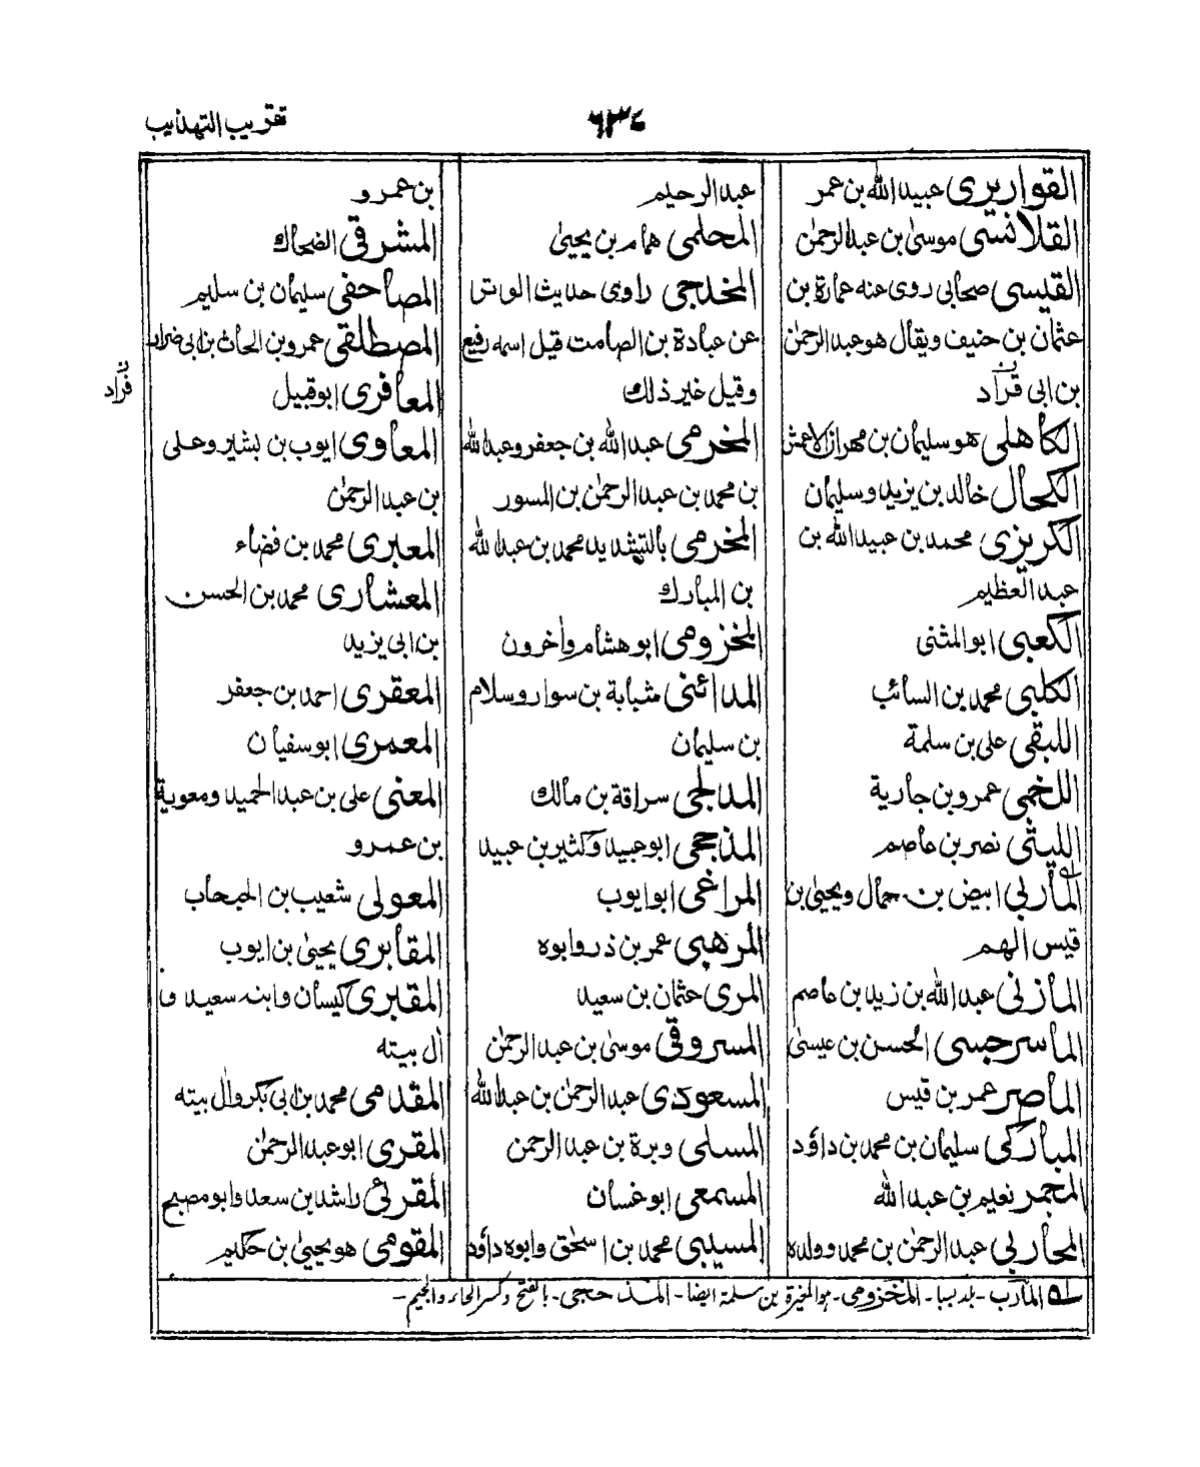 تقريب التهذيب
٦٣٤
القواريرى عبيد الله بن عمر
القلانسى موسىٰ بن عبد الرحمٰن
القيسى صحابى روى عنه عمارة بن
عثمان بن حنيف ويقال هو عبد الرحمٰن
بن ابى قراد
الكاهلى هو سليمان بن مهران الاعمش
الكحال خالد بن يزيد وسليمان
الكريزى محمد بن عبيد الله بن
عبد العظيم
الكعبى ابو المثنى
الكلبى محمد بن السائب
اللبقى على بن سلمة
اللخمى عمرو بن جارية
الليثى نصر بن عاصم
المأربى ابيض بن حمال ويحيىٰ بن
قيس الهم
المازنى عبد الله بن زيد بن عاصم
الماسرجسى الحسن بن عيسىٰ
الماصر عمر بن قيس
المباركى سليمان بن محمد بن داؤد
المجمر نعيم بن عبد الله
المحاربى عبد الرحمٰن بن محمد وولده
عبد الرحيم
المحلمى همام بن يحيىٰ
المخدجى راوى حديث الوتر
عن عبادة بن الصامت قيل اسمه رفيع
وقيل غير ذلك
المخرمى عبد الله بن جعفر وعبد الله
بن محمد بن عبد الرحمٰن بن المسور
المخرمى بالتشديد محمد بن عبد الله
بن المبارك
المخزومى ابو هشام واٰخرون
المدائنى شبابة بن سوار وسلام
بن سليمان
المدلجى سراقة بن مالك
المذحجى ابو عبيد وكثير بن عبيد
المراغى ابو ايوب
المرهبى عمر بن ذر وابوه
المرى عثمان بن سعيد
المسروقى موسىٰ بن عبد الرحمٰن
المسعودى عبد الرحمٰن بن عبد الله
المسلى وبرة بن عبد الرحمن
المسمعى ابو غسان
المسيبى محمد بن اسحٰق وابوه داؤد
بن عمرو
المشرقى الضحاك
المصاحفى سليمان بن سليم
المصطلقى عمرو بن الحارث بن ابى ضرار
المعافرى ابو قبيل
المعاوى ايوب بن بشير وعلى
بن عبد الرحمٰن
المعبرى محمد بن فضاء
المعشارى محمد بن الحسن
بن ابى يزيد
المعقرى احمد بن جعفر
المعمرى ابو سفيان
المعنى على بن عبد الحميد ومعوية
بن عمرو
المعولى شعيب بن الحبحاب
المقابرى يحيىٰ بن ايوب
المقبرى كيسان وابنه سعيد و
اٰل بيته
المقدمى محمد بن ابى بكر واٰل بيته
المقرى ابو عبد الرحمٰن
المقرئى راشد بن سعد وابو مصبح
المقومى هو يحيىٰ بن حكيم
ن
قراد
له المآرب - بلد بسبا - المخزومى - هو المغيرة بن سلمة ايضا - المذحجى - بالفتح وكسر الحاء والجيم -